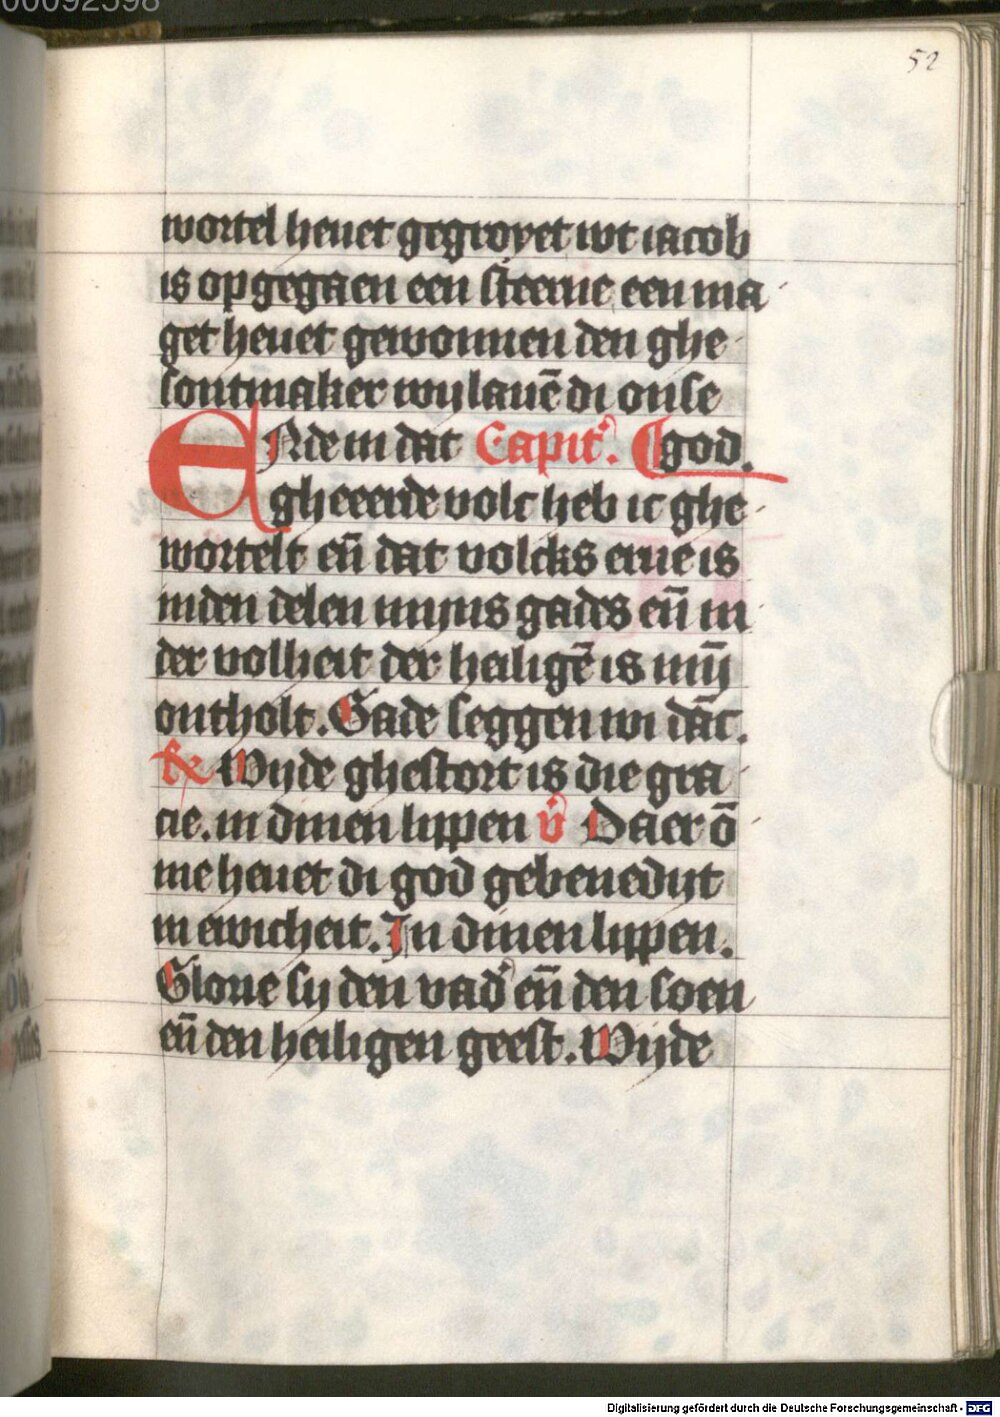 00092598
52
wortel heuet gegroyet wt iacob
is op gegaen een steerne een ma
get heuet gewonnen den ghe
sontmaker wy lauē di onse
ENde in dat Capit'. god.
gheeerde volc heb ic ghe
wortelt en̄ dat volcks erue is
inden delen mijns gades en̄ in
der volheit der heiligē is mīj
ontholt. Gade seggen wi dāc.
R Wijde ghestort is die gra
cie. in dinen lippen v̄ Daer ō
me heuet di god gebenedijt
in ewicheit. In dinen lippen.
Glorie sy den vad' en̄ den soen
en̄ den heiligen geest. Wijde
Digitalisierung gefördert durch die Deutsche Forschungsgemeinschaft - DFG